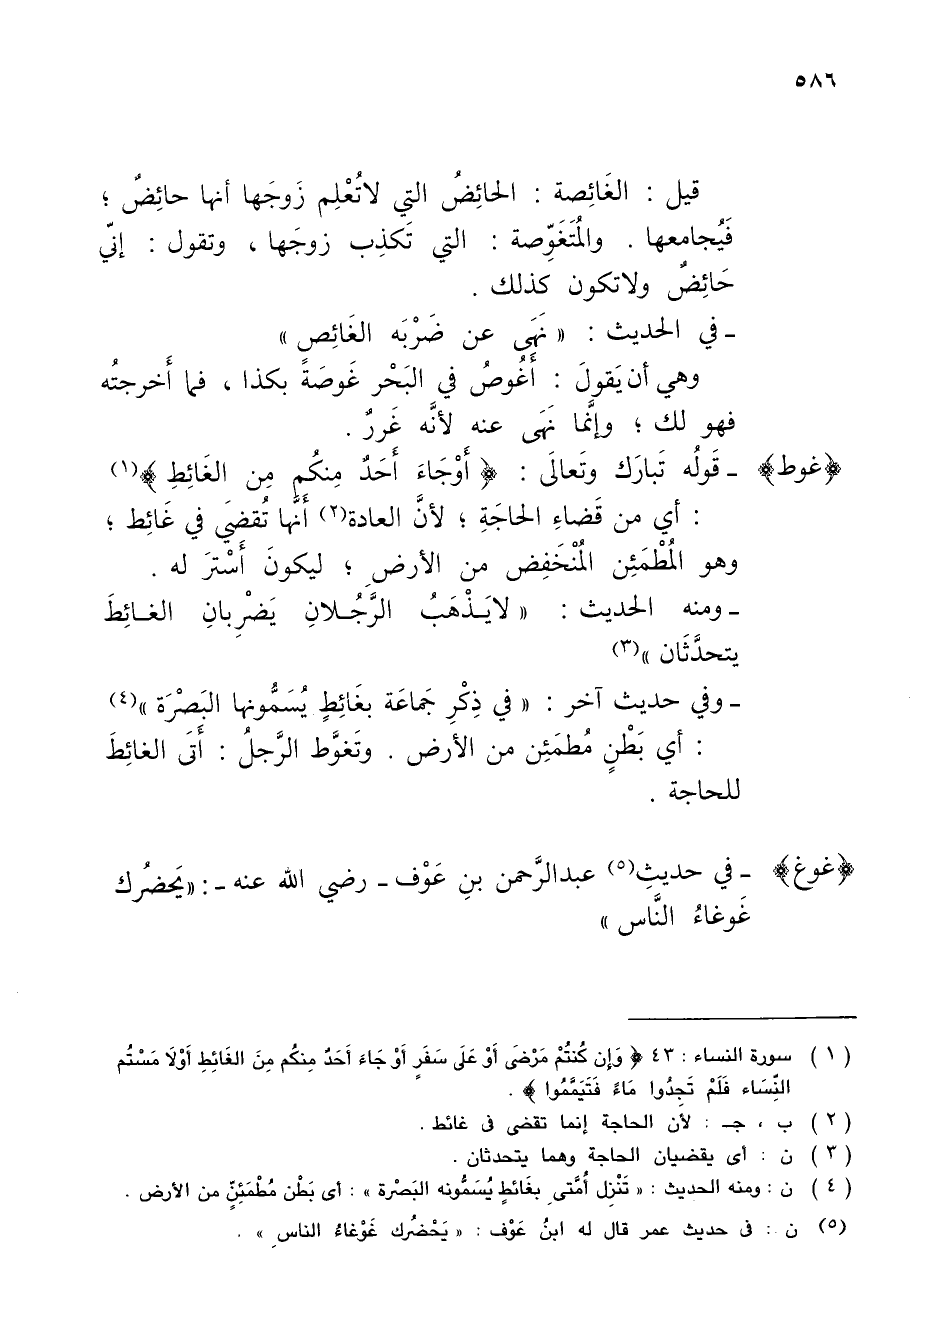 ٥٨٦
قيل : الغَائِصة : الحائِضُ التي لاتُعْلِم زَوجَها أنها حائِضٌ ؛
فَيُجامعها . والمُتَغَوِّصة : التي تَكذِب زوجَها ، وتقول : إنيّ
حَائِضٌ ولاتكون كذلك .
ـ في الحديث : « نَهَى عن ضَرْبَه الغَائِص »
وهي أن يَقولَ : أَغُوصُ في البَحْر غَوصَةً بكذا ، فما أَخرجتُه
فهو لك ؛ وإنَّما نَهَى عنه لأنَّه غَررٌ .
﴿غوط﴾ ـ قَولُه تَبارَك وتَعالَى : ﴿ أَوْجَاءَ أَحَدٌ مِنكُم مِن الغَائِطِ ﴾(١)
: أي من قَضاءِ الحاجَةِ ؛ لأنَّ العادة(٢) أَنَّها تُقضىَ في غَائِط ؛
وهو المُطْمَئِن المُنْخَفِض من الأرضِ ؛ ليكونَ أَسْترَ له .
ـ ومنه الحديث : « لايَـذْهَبُ الرَّجُـلانِ يَضْرِبانِ الغـائِطَ
يتحدَّثَان »(٣)
ـ وفي حديث آخر : « في ذِكْرِ جَماعَة بغَائِطٍ يُسَمُّونها البَصْرَة »(٤)
: أي بَطْنٍ مُطمَئِن من الأرض . وتَغوَّط الرَّجلُ : أَتَى الغائِطَ
للحاجة .
﴿غوغ﴾ ـ في حديثِ(٥) عبدالرَّحمن بنِ عَوْف ـ رضي الله عنه ـ : « يَحضُرك
غَوغاءُ النَّاس »
( ١ ) سورة النساء : ٤٣ ﴿ وَإِن كُنتُمْ مَرْضَى أَوْ عَلَى سَفَرٍ أَوْ جَاءَ أَحَدٌ مِنكُم مِنَ الغَائطِ أَوْلَا مَسْتُم
النِّسَاء فَلَمْ تَجِدُوا مَاءً فَتَيَمَّمُوا ﴾ .
( ٢ ) ب ، جـ : لأن الحاجة إنما تقضى فى غائط .
( ٣ ) ن : أى يقضيان الحاجة وهما يتحدثان .
( ٤ ) ن : ومنه الحديث : « تَنْزِل أُمَّتى بِغَائطٍ يُسَمُّونه البَصْرة » : أى بَطْن مُطْمَئِنٍّ من الأرض .
(٥) ن : فى حديث عمر قال له ابنُ عَوْف : « يَحْضُرك غَوْغاءُ الناسِ » .